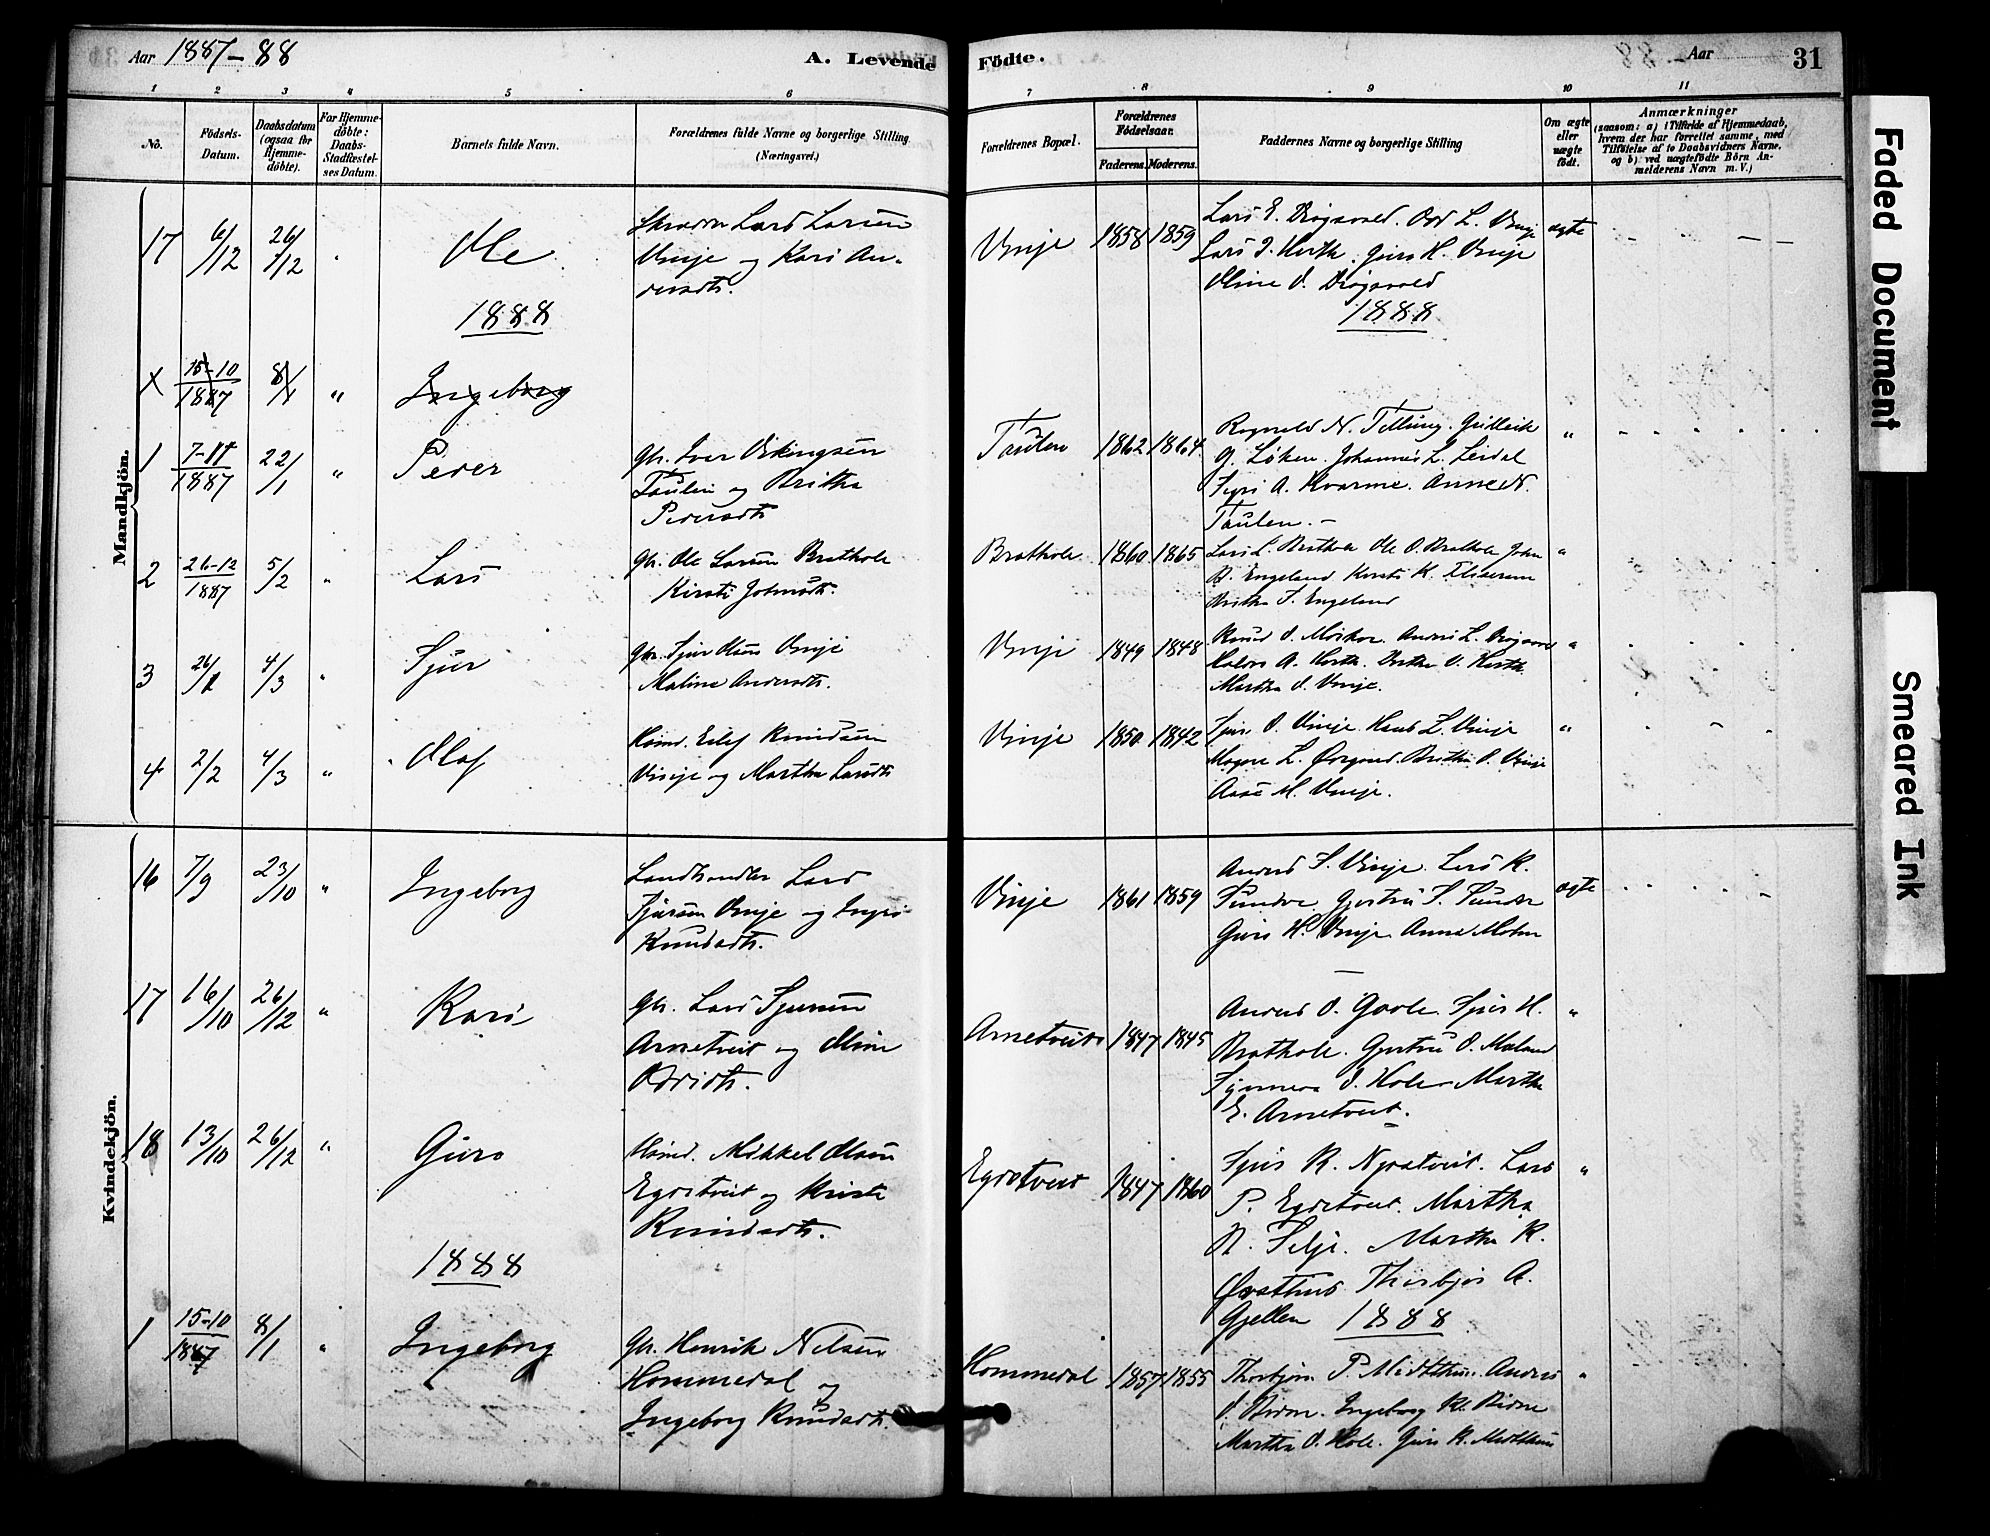 Aar 1887-88
A. Levende Födte.
Aar
31
1 2 3 4 5 6 7 8 9 10 11
No.
Födsels-Datum.
Daabsdatum (ogsaa for Hjemmedöbte).
For Hjemmedöbte: Daabs-Stadfæstelses Datum.
Barnets fulde Navn.
Forældrenes fulde Navne og borgerlige Stilling (Næringsvei.)
Forældrenes Bopæl.
Forældrenes Födselsaar.
Faderens. Moderens.
Faddernes Navne og borgerlige Stilling
Om ægte eller uægte födt.
Anmærkninger
(saasom: a) i Tilfælde af Hjemmedaab, hvem der har forrettet samme, med Tilföielse af to Daabsvidners Navne, og b) ved uægtefödte Börn Anmelderens Navn m. V.)
Mandkjön.
17 6/12 26/12 " Ole
Lars Larsen
Vinje og Kari An-
dersdtr.
Vinje 1858 1859
Lars E. Drogsvold. Odd L. Vinje
Guro H. Vinje
Drogsvold
ægte
1888
1888
X 15-10/1887 8/1 " Ingeborg
1 7-11/1887 22/1 " Peder
Gbr. Iver Vikingsen
Taulen og Britha
Pedersdtr
Taulen 1862 1864
Ragnald N. Tillung. Gudleik
G. Löken. Johannes L. Leidal
Sigri A. Kvarme. Anne N.
Taulen. -
"
2 26-12/1887 5/2 " Lars
Gbr. Ole Larsen Brathole
Kirsti Johnsdtr.
Brathole 1860 1865
Ole O. Brathole John
B. Engeland Kirsti K.
Britha I. Engeland
"
3 26/1 4/3 " Sjur
Gbr. Sjur Olsen Vinje
Maline Andersdtr.
Vinje 1849 1848
Knud O. Anders L.
Martha O. Vinje.
"
4 2/2 4/3 " Olaf
Husmd. Eilef Knudsen
Vinje og Martha Larsdtr
Vinje 1850 1842
Sjur O. Vinje Hans L. Vinje
Magne L. Britha O. Vinje
Aase M. Vinje.
"
Kvindekjön.
16 7/9 23/10 " Ingeborg
Landhandler Lars
Sjursen Vinje og Ingri
Knudsdtr.
Vinje 1861 1859
Anders S. Vinje. Lars K.
Sundve Gjertru S. Sundve
Guro H. Vinje Anna
ægte
17 16/10 26/12 " Kari
Gbr. Lars Sjursen
Arnetveit og
Arnetveit 1847 1845
Anders O. Sjur H.
Brathole. Gjertru O. Mæland
Synneva O. Hole Martha
E. Arnetveit.
"
18 13/10 26/12 " Guro
Husmd. Mikkel Olsen
Egdetveit og Kirsti
Knudsdtr.
Egdetveit 1847 1860
Sjur K. Lars
P. Egdetveit. Martha
N. Selje. Martha K.
Thorbjør A.
Gjellen
"
1888
1888
1 15-10/1887 8/1 " Ingeborg
Gbr. Henrik Nilsen
Hommedal og
Ingeborg Knudsdtr.
Hommedal 1857 1855
Thorbjørn P. Midtthun. Anders
O. Ingeborg Kl.
Martha O. Hole. Guro K. Midtthun
"
Faded Document
Smeared Ink